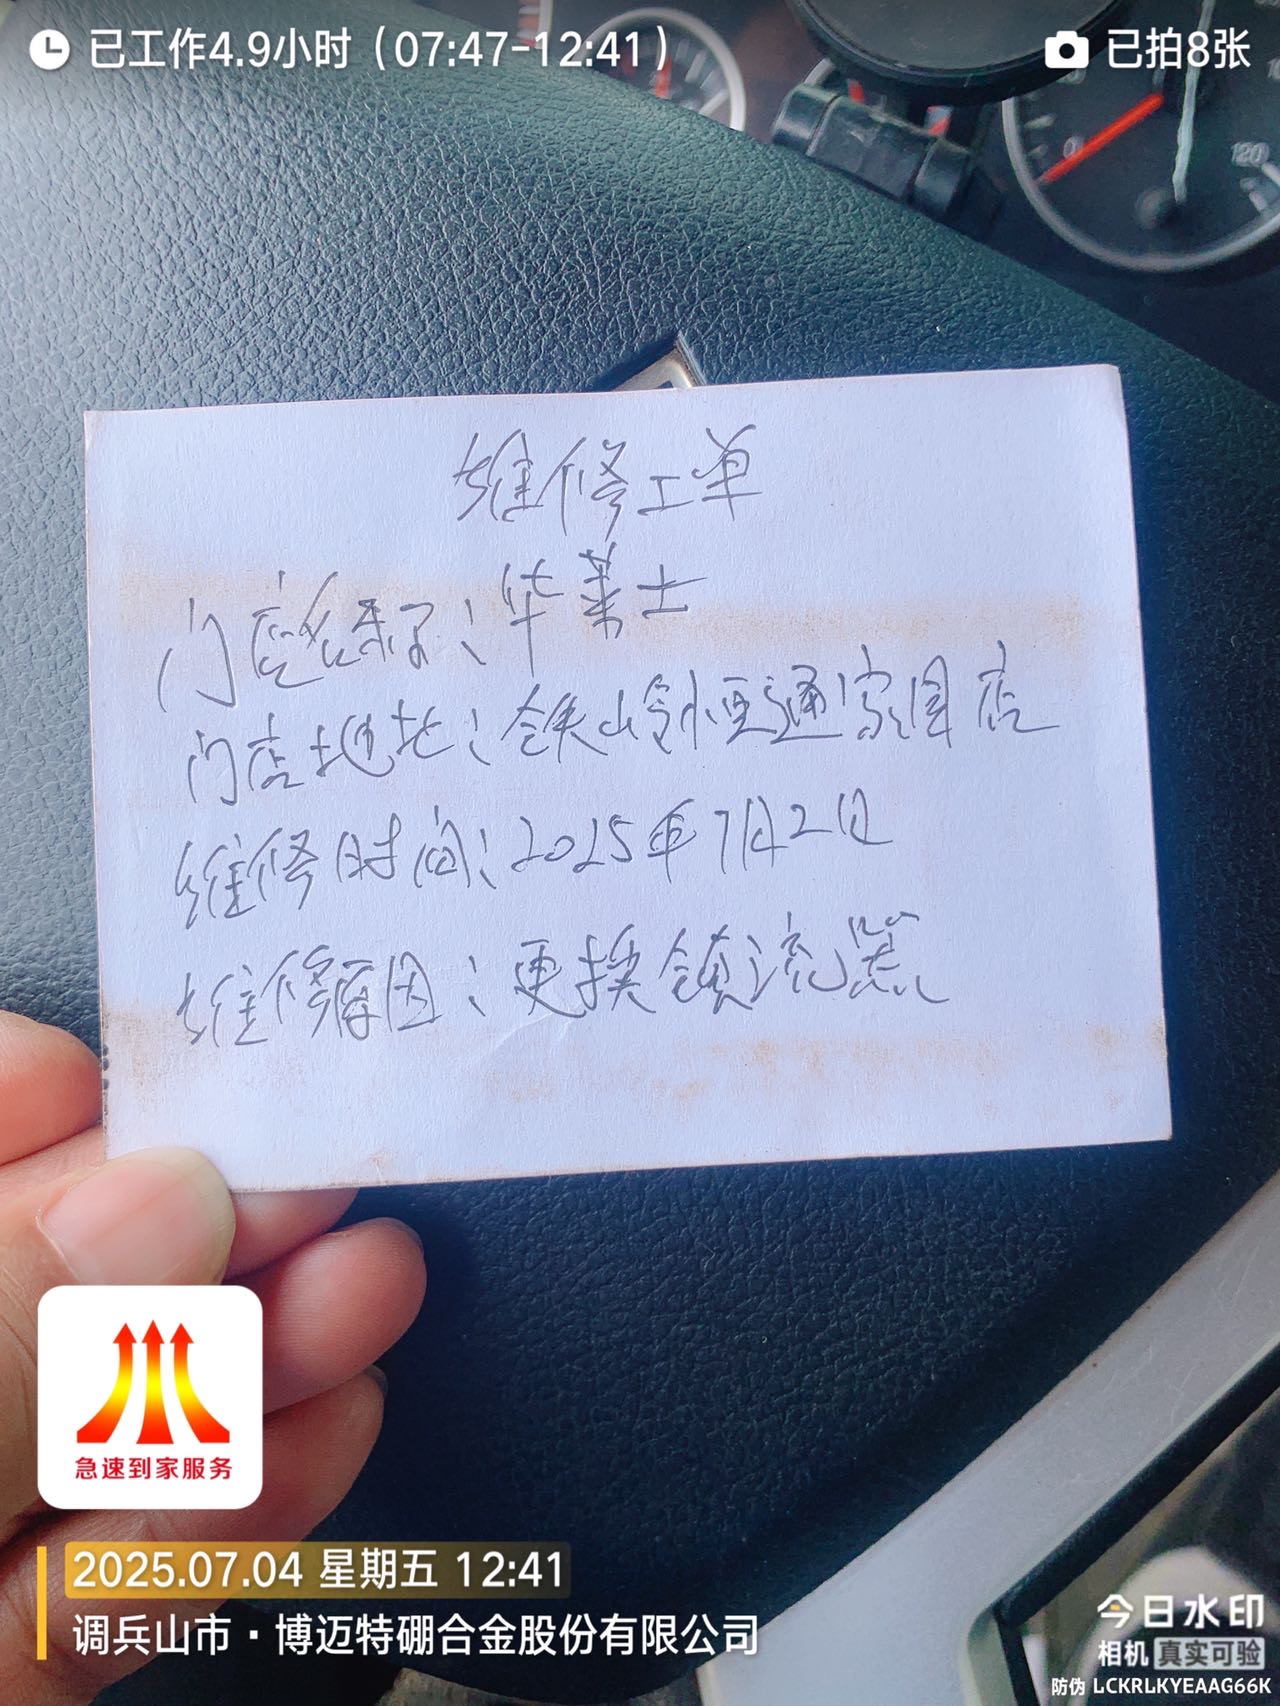 已工作4.9小时（07:47-12:41）
已拍8张
0
120
维修工单
门店名称：华莱士
门店地址：铁岭恒通家园店
维修时间：2025年7月2日
维修原因：更换镇流器
急速到家服务
2025.07.04 星期五 12:41
调兵山市·博迈特硼合金股份有限公司
今日水印
相机 真实可验
防伪 LCKRLKYEAAG66K